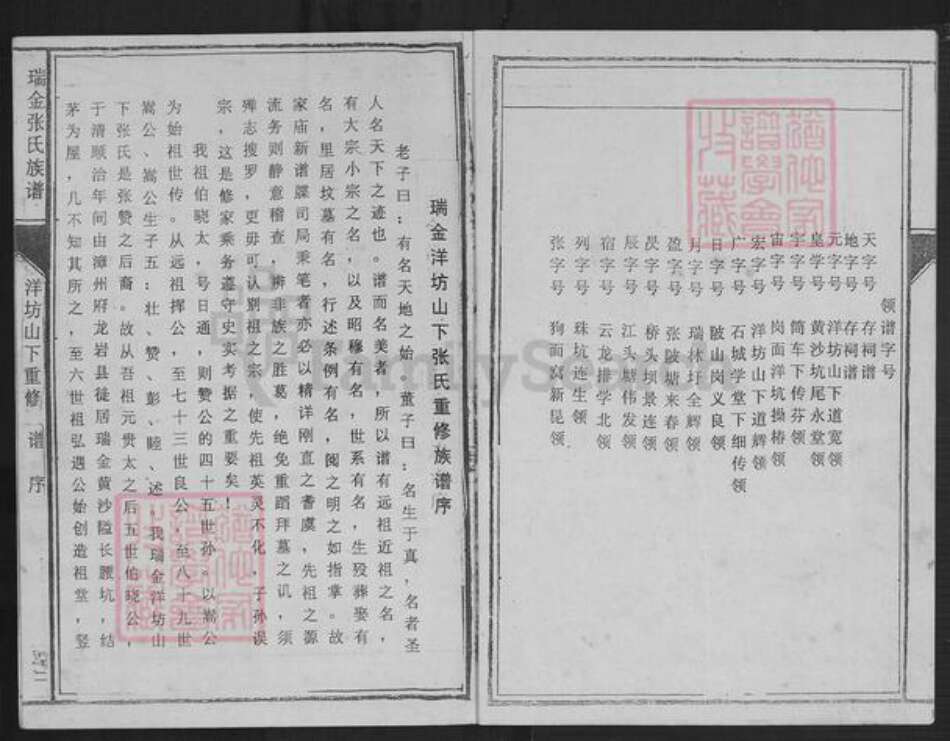 领谱字号
天字号 存祠谱
地字号 存祠谱
元字号 洋坊山下道宽领
皇学号 黄沙坑尾永堂领
宇字号 简车下传芬领
宙字号 岗面洋坑操椿领
宏字号 洋坊山下道辉领
广字号 石城学堂下细传领
日字号 陂山岗义良领
月字号 瑞林圩全辉领
盈字号 张陂塘来春领
昃字号 桥头坝景连领
辰字号 江头塘伟发领
宿字号 云龙排学北领
列字号 珠坑连生领
张字号 狗面窝新昆领
瑞金洋坊山下张氏重修族谱序
老子曰：有名天地之始，董子曰：名生于真，名者圣
人名天下之迹也。谱而名美者，所以谱有远祖近祖之名，
有大宗小宗之名，以及昭穆有名，世系有名，生殁葬娶有
名，里居坟墓有名，行述条例有名，阅之明之如指掌。故
家庙新谱牒司局秉笔者亦必以精详刚直之耆虞，先祖之源
流务则静意稽查，辨非族之胜葛，绝免重蹈拜墓之讥，须
殚志搜罗，更毋可认别祖之宗，使先祖英灵不化，子孙误
宗，这是修家乘务遵守史实考据之重要矣！
我祖伯晓太，号日通，则赞公的四十五世孙。以嵩公
为始祖世传。从远祖挥公，至七十三世良公，至八十九世
嵩公、嵩公生子五：壮、赞、彭、睦、述，我瑞金洋坊山
下张氏是张赞之后裔。故从吾祖元贵太之后五世伯晓公，
于清顺治年间由漳州府龙岩县徒居瑞金黄沙隘长腰坑，结
茅为屋，几不知其所之，至六世祖弘遇公始创造祖堂，竖
瑞金张氏族谱
洋坊山下重修 谱序
FamilySearch